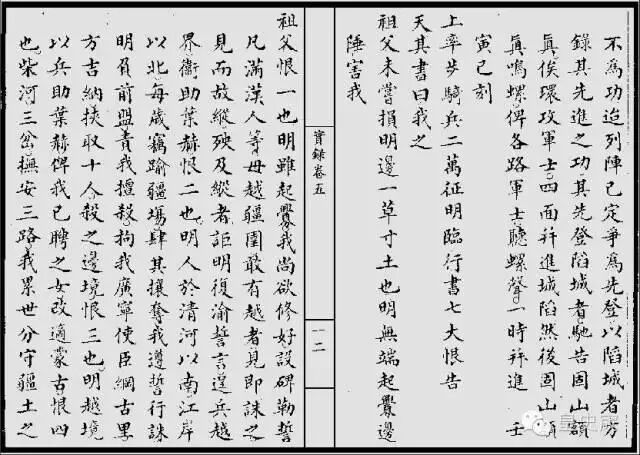 不爲功迨列陣已定爭爲先登以陷城者方
錄其先進之功其先登陷城者馳告固山額
眞俟環攻軍士四面幷進城陷然後固山額
眞鳴螺俾各路軍士聽螺聲一時幷進 壬
寅巳刻
上率步騎兵二萬征明臨行書七大恨告
天其書曰我之
祖父未嘗損明邊一草寸土也明無端起釁邊
陲害我
實錄卷五
一二
祖父恨一也明雖起釁我尚欲修好設碑勒誓
凡滿漢人等毋越疆圉敢有越者見即誅之
見而故縱殃及縱者詎明復渝誓言逞兵越
界衛助葉赫恨二也明人於清河以南江岸
以北每歲竊踰疆埸肆其攘奪我遵誓行誅
明負前盟責我擅殺拘我廣寧使臣綱古里
方吉納挾取十人殺之邊境恨三也明越境
以兵助葉赫俾我已聘之女改適蒙古恨四
也柴河三岔撫安三路我累世分守疆土之
皇史宬